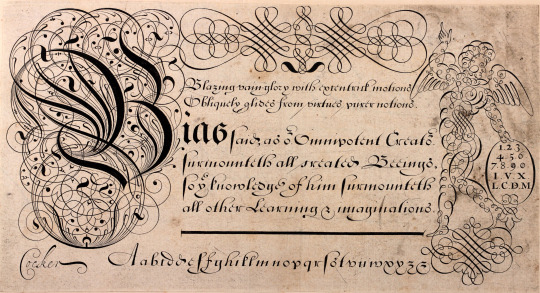 Blazing vain glory with excentrick motions
Obliquely glides from virtues purer notions.
Bias said, as yᵉ Omnipotent Creatoʳ
surmounteth all created Beeings,
so yᵉ knowledge of him surmounteth
all other Learning & imaginations.
1 2 3
4 5 6
7 8 9 0
I V X
L C D M
Cocker